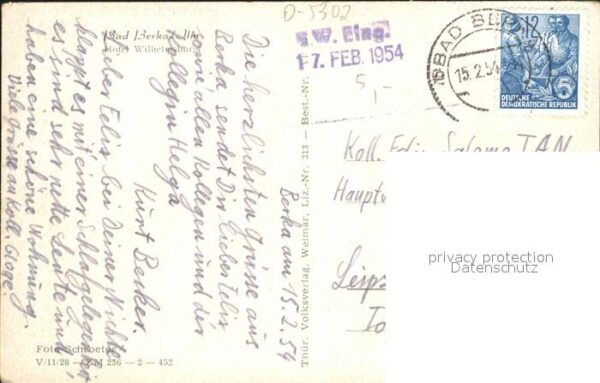 D-5302
Bad Berka/Ilm
Hotel Wilhelmsburg
W. Eing.
17. FEB. 1954
5,-
BAD BERKA
15.2.54
12
5
DEUTSCHE
DEMOKRATISCHE REPUBLIK
Berka am 15.2.54
Die herzlichsten Grüsse aus
Berka sendet Dir lieber Felix
sowie allen Kollegen und der
Kollegin Helga
Kurt Becker.
Lieber Felix bei Deiner Nichte
klappt es mit einer Schlafgelegenheit
es sind sehr nette Leute und
haben eine schöne Wohnung.
Viele Grüsse an Koll.
Foto Schroeter
V/11/28 — ZM 256 — 2 — 452
Thür. Volksverlag, Weimar, Liz.-Nr. 313 — Best.-Nr.
Koll. Felix Salomo TAN
Hauptv
Leipz
privacy protection
Datenschutz